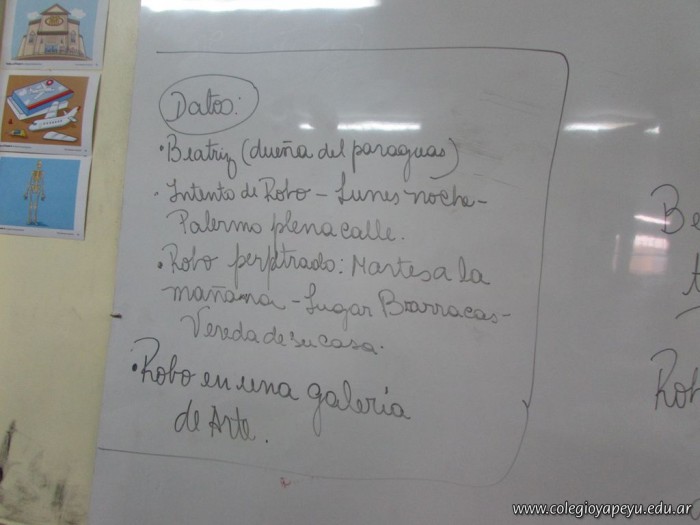 Datos:
• Beatriz (dueña del paraguas)
- Intento de Robo - Lunes noche -
Palermo plena calle.
• Robo perptrado: Martes a la
mañana - Lugar Barracas -
Vereda de su casa.
• Robo en una galería
de Arte.
Be
t
Rob
www.colegioyapeyu.edu.ar